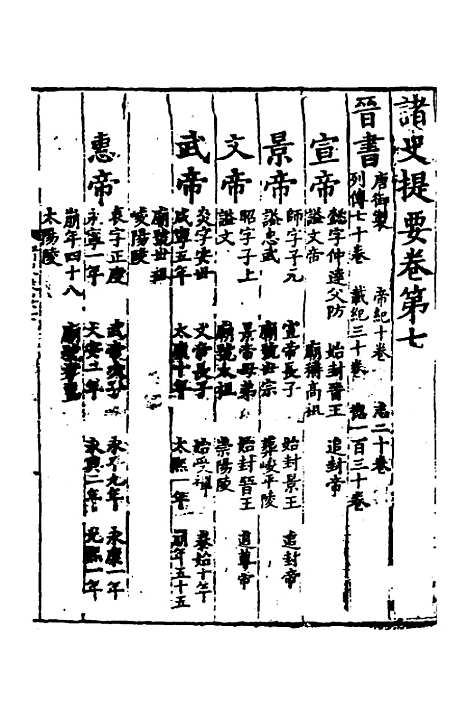 諸史提要卷第七
晉書 唐御製 帝紀十卷 志二十卷
列傳七十卷 載紀三十卷 總一百三十卷
宣帝 懿字仲達父防 始封晉王 追封帝
諡文帝 廟稱高祖
景帝 師字子元 宣帝長子 始封景王 追封帝
諡忠武 廟號世宗 葬峻平陵
文帝 昭字子上 景帝母弟 始封晉王 追尊帝
諡文 廟號太祖 崇陽陵
武帝 炎字安世 文帝長子 始受禪 泰始十年
咸寧五年 太康十年 太熙一年 崩年五十五
廟號世祖
峻陽陵
惠帝 衷字正度 武帝次子 永平九年 永康一年
永寧一年 太安二年 永興二年 光熙一年
崩年四十八
太陽陵